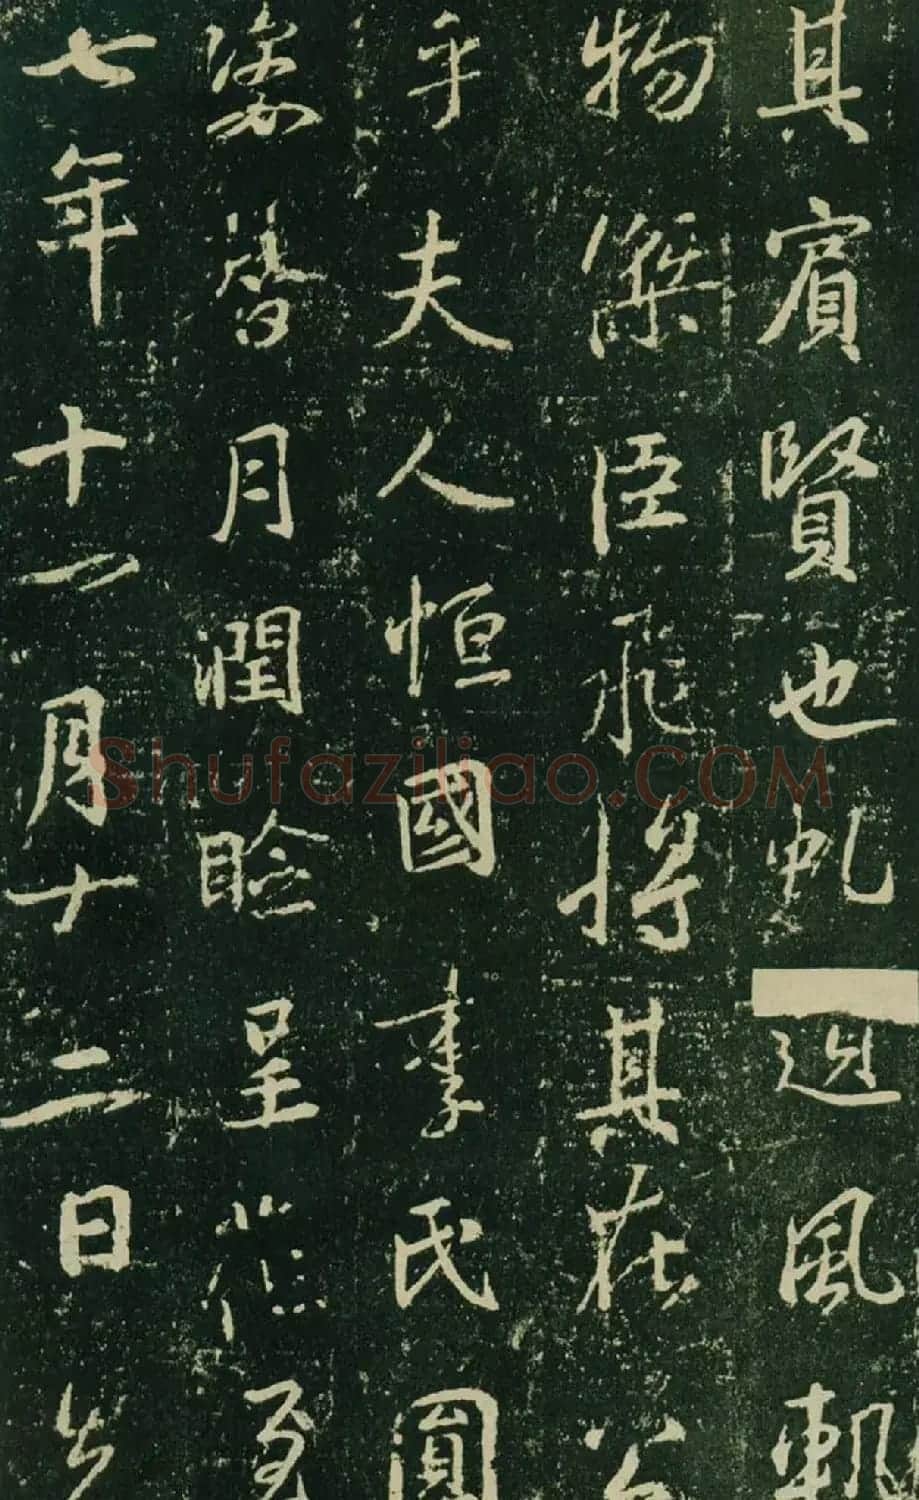 其賓賢也虬風軌
物傑臣飛將其在公
乎夫人恒國李氏圓
姿替月潤臉呈花
七年十一月十二日
Shufaziliao.COM